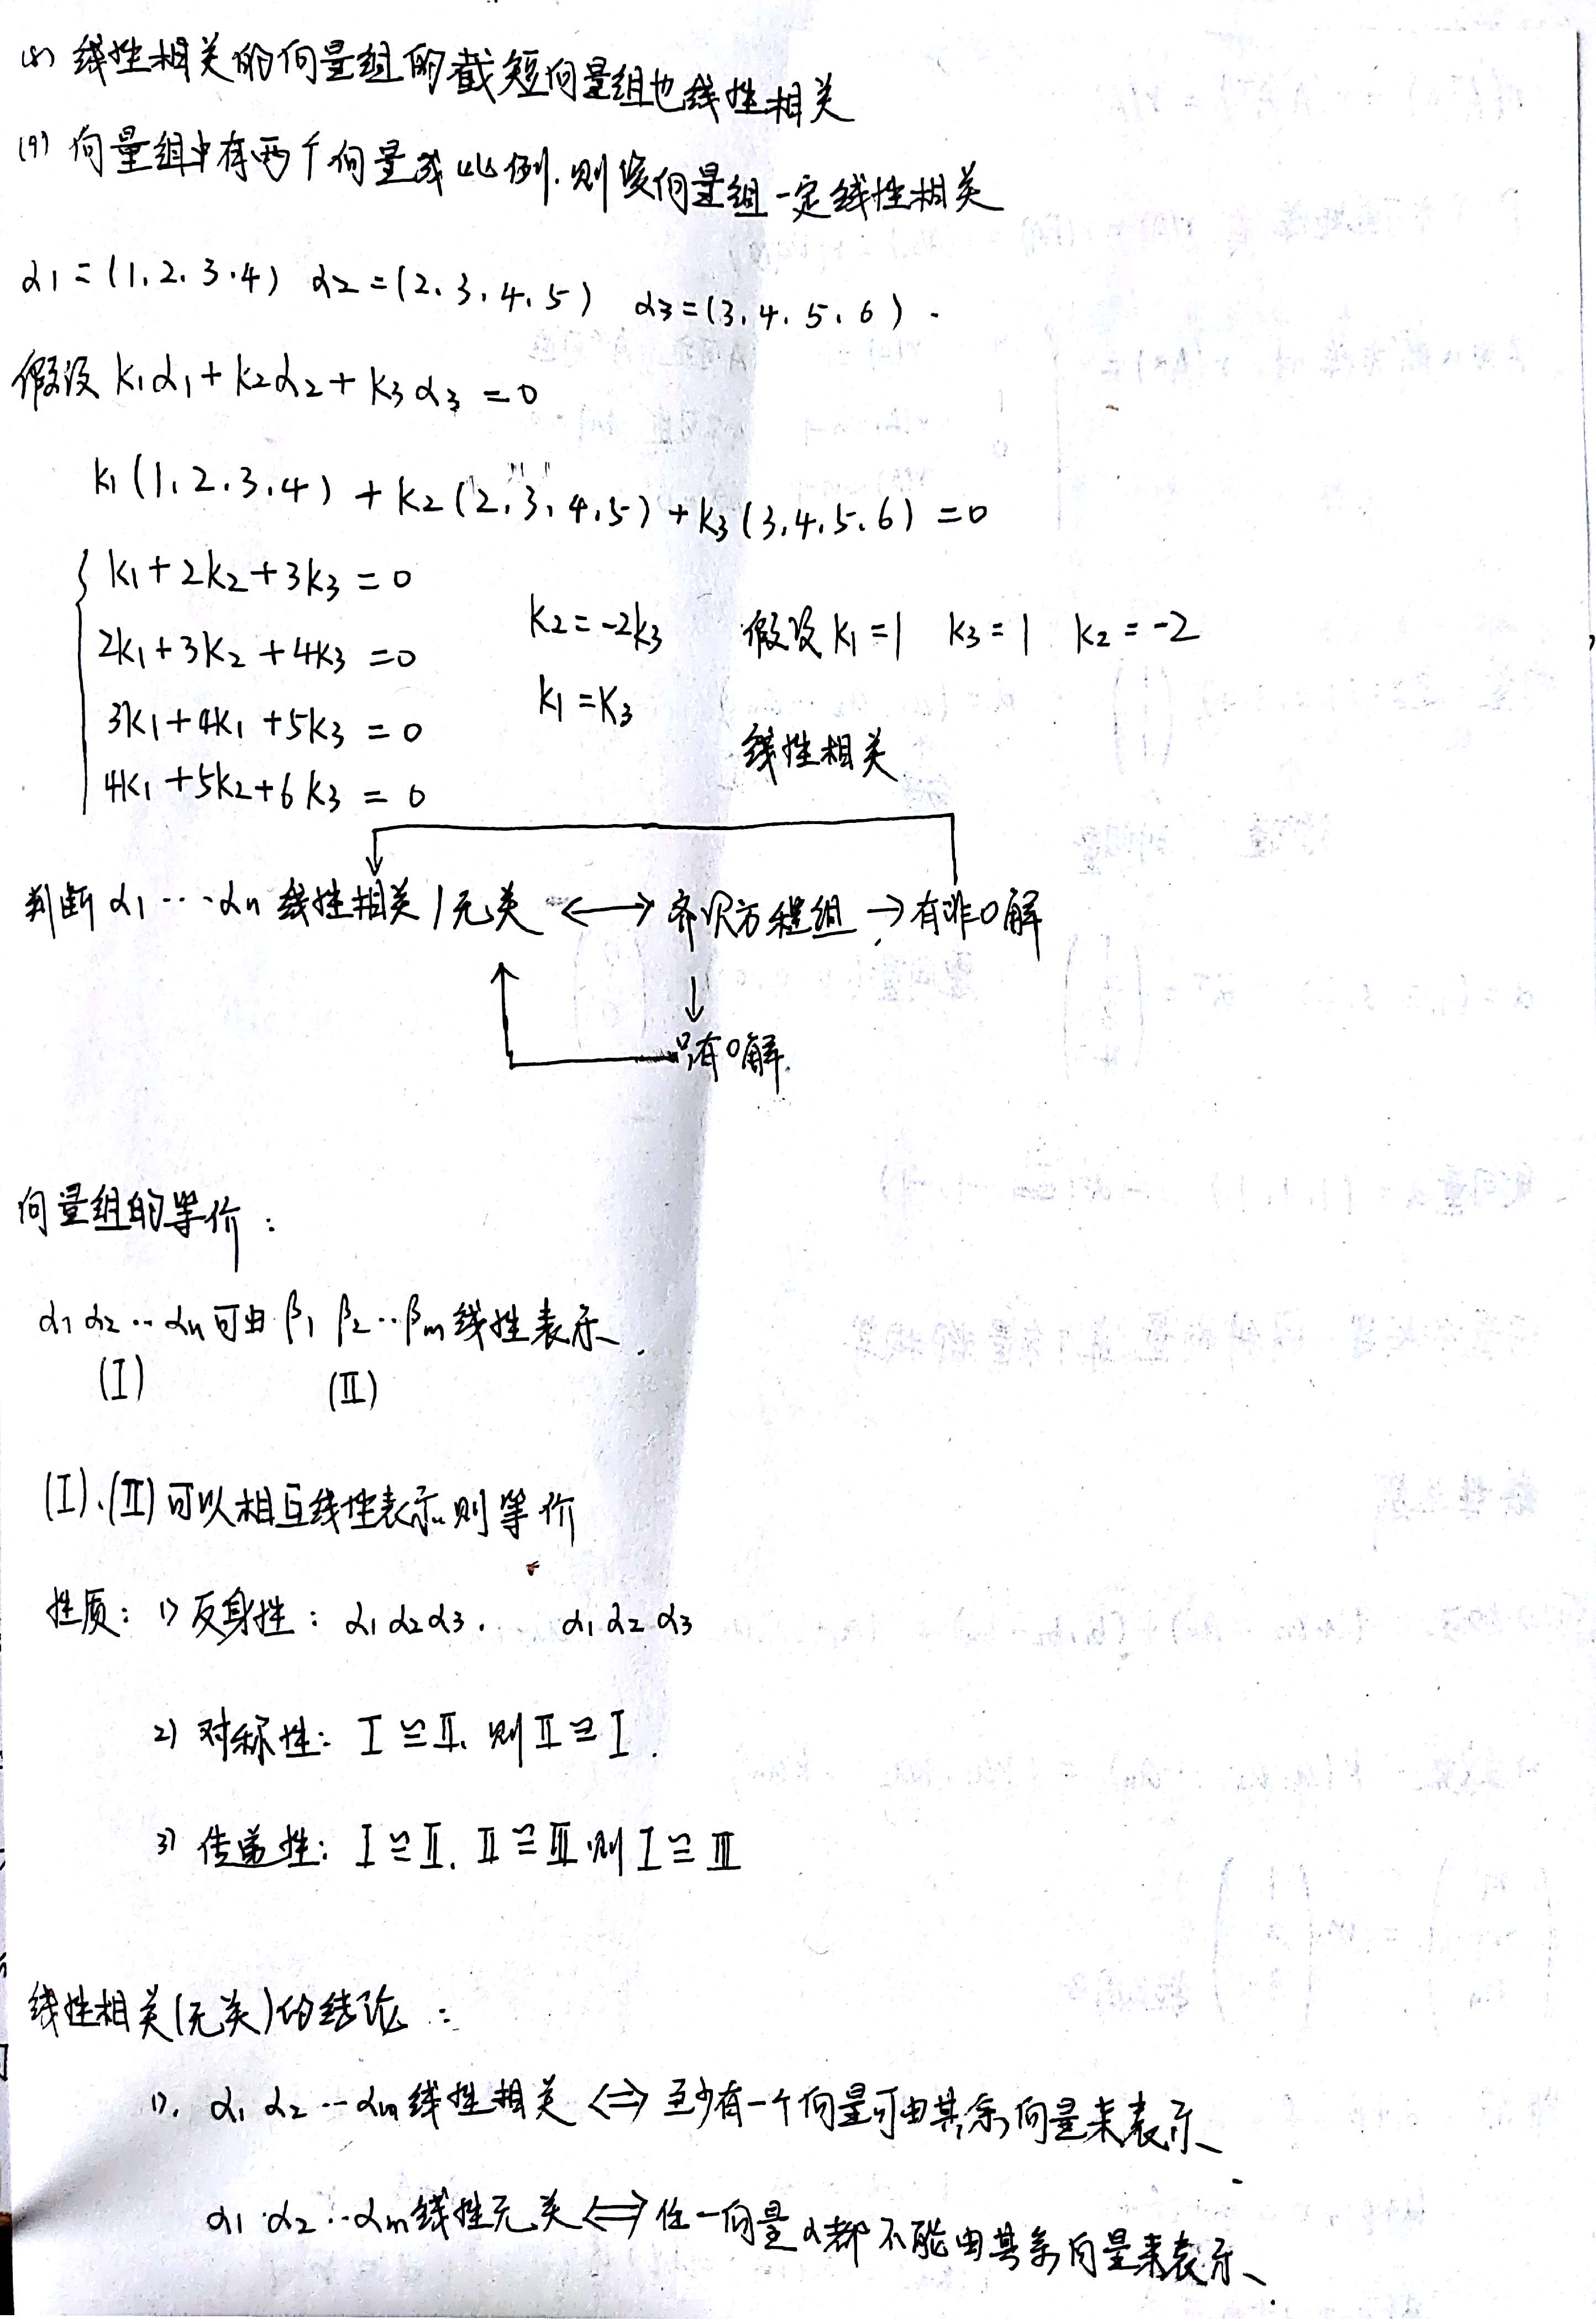 (8) 线性相关的向量组的截短向量组也线性相关
(9) 向量组中有两个向量成比例.则该向量组一定线性相关
α1=(1.2.3.4) α2=(2.3.4.5) α3=(3.4.5.6).
假设 k1α1+k2α2+k3α3=0
k1(1.2.3.4)+k2(2.3.4.5)+k3(3.4.5.6)=0
k1+2k2+3k3=0
2k1+3k2+4k3=0 k2=-2k3 假设k1=1 k3=1 k2=-2
3k1+4k1+5k3=0 k1=k3
4k1+5k2+6k3=0 线性相关
判断α1…αn 线性相关/无关 ⟷ 齐次方程组 → 有非0解
↓
只有0解.
向量组的等价:
α1 α2…αn可由β1 β2…βm线性表示.
(Ⅰ) (Ⅱ)
(Ⅰ).(Ⅱ)可以相互线性表示.则等价
性质: 1) 反身性: α1 α2 α3. α1 α2 α3
2) 对称性: Ⅰ≌Ⅱ. 则Ⅱ≌Ⅰ.
3) 传递性: Ⅰ≌Ⅱ. Ⅱ≌Ⅲ.则Ⅰ≌Ⅲ
线性相关(无关)的结论:
1). α1 α2…αm线性相关 ⟺ 至少有一个向量可由其余向量来表示.
α1 α2…αm线性无关 ⟺ 任一向量α都不能由其余向量来表示.